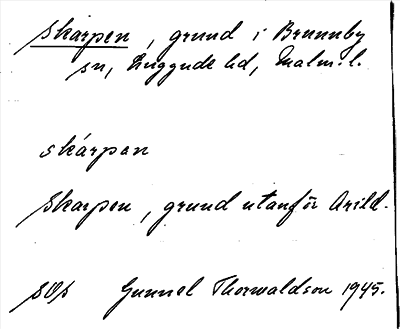 Skarpen, grund i Brunnby
sn, Luggude hd, Malm. l.
skárpan
Skarpen, grund utanför Arild.
sOs Gunnel Thorwaldson 1945.